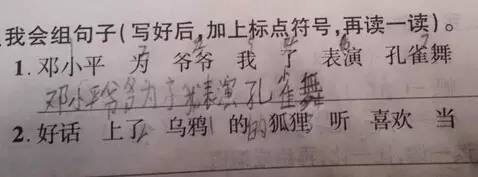 我会组句子(写好后,加上标点符号,再读一读)。
1. 邓小平 为 爷爷 我 了 表演 孔雀舞
邓小平爷爷为了我表演孔雀舞
2. 好话 上了 乌鸦 的 狐狸 听 喜欢 当